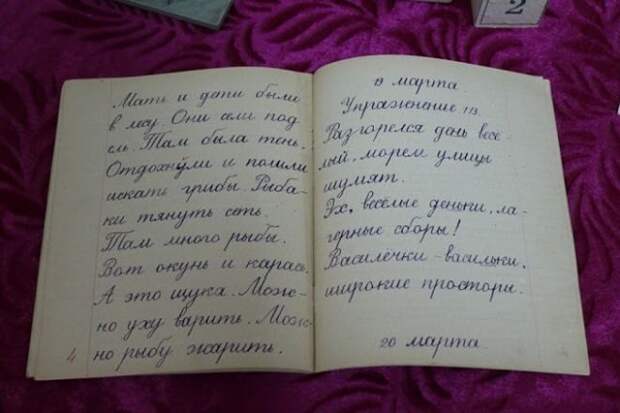 Мать и дети были
в лесу. Они сели под
ель. Там была тень.
Отдохнули и пошли
искать грибы. Рыба-
ки тянуть сеть.
Там много рыбы.
Вот окунь и карась.
А это щука. Мож-
но уху варить. Мож-
но рыбу жарить.
4
19 марта
Упражнение 113.
Разгорелся день весё-
лый, морем улицы
шумят.
Эх, весёлые деньки, ла-
герные сборы!
Василёчки-васильки,
широкие просторы.
20 марта
2